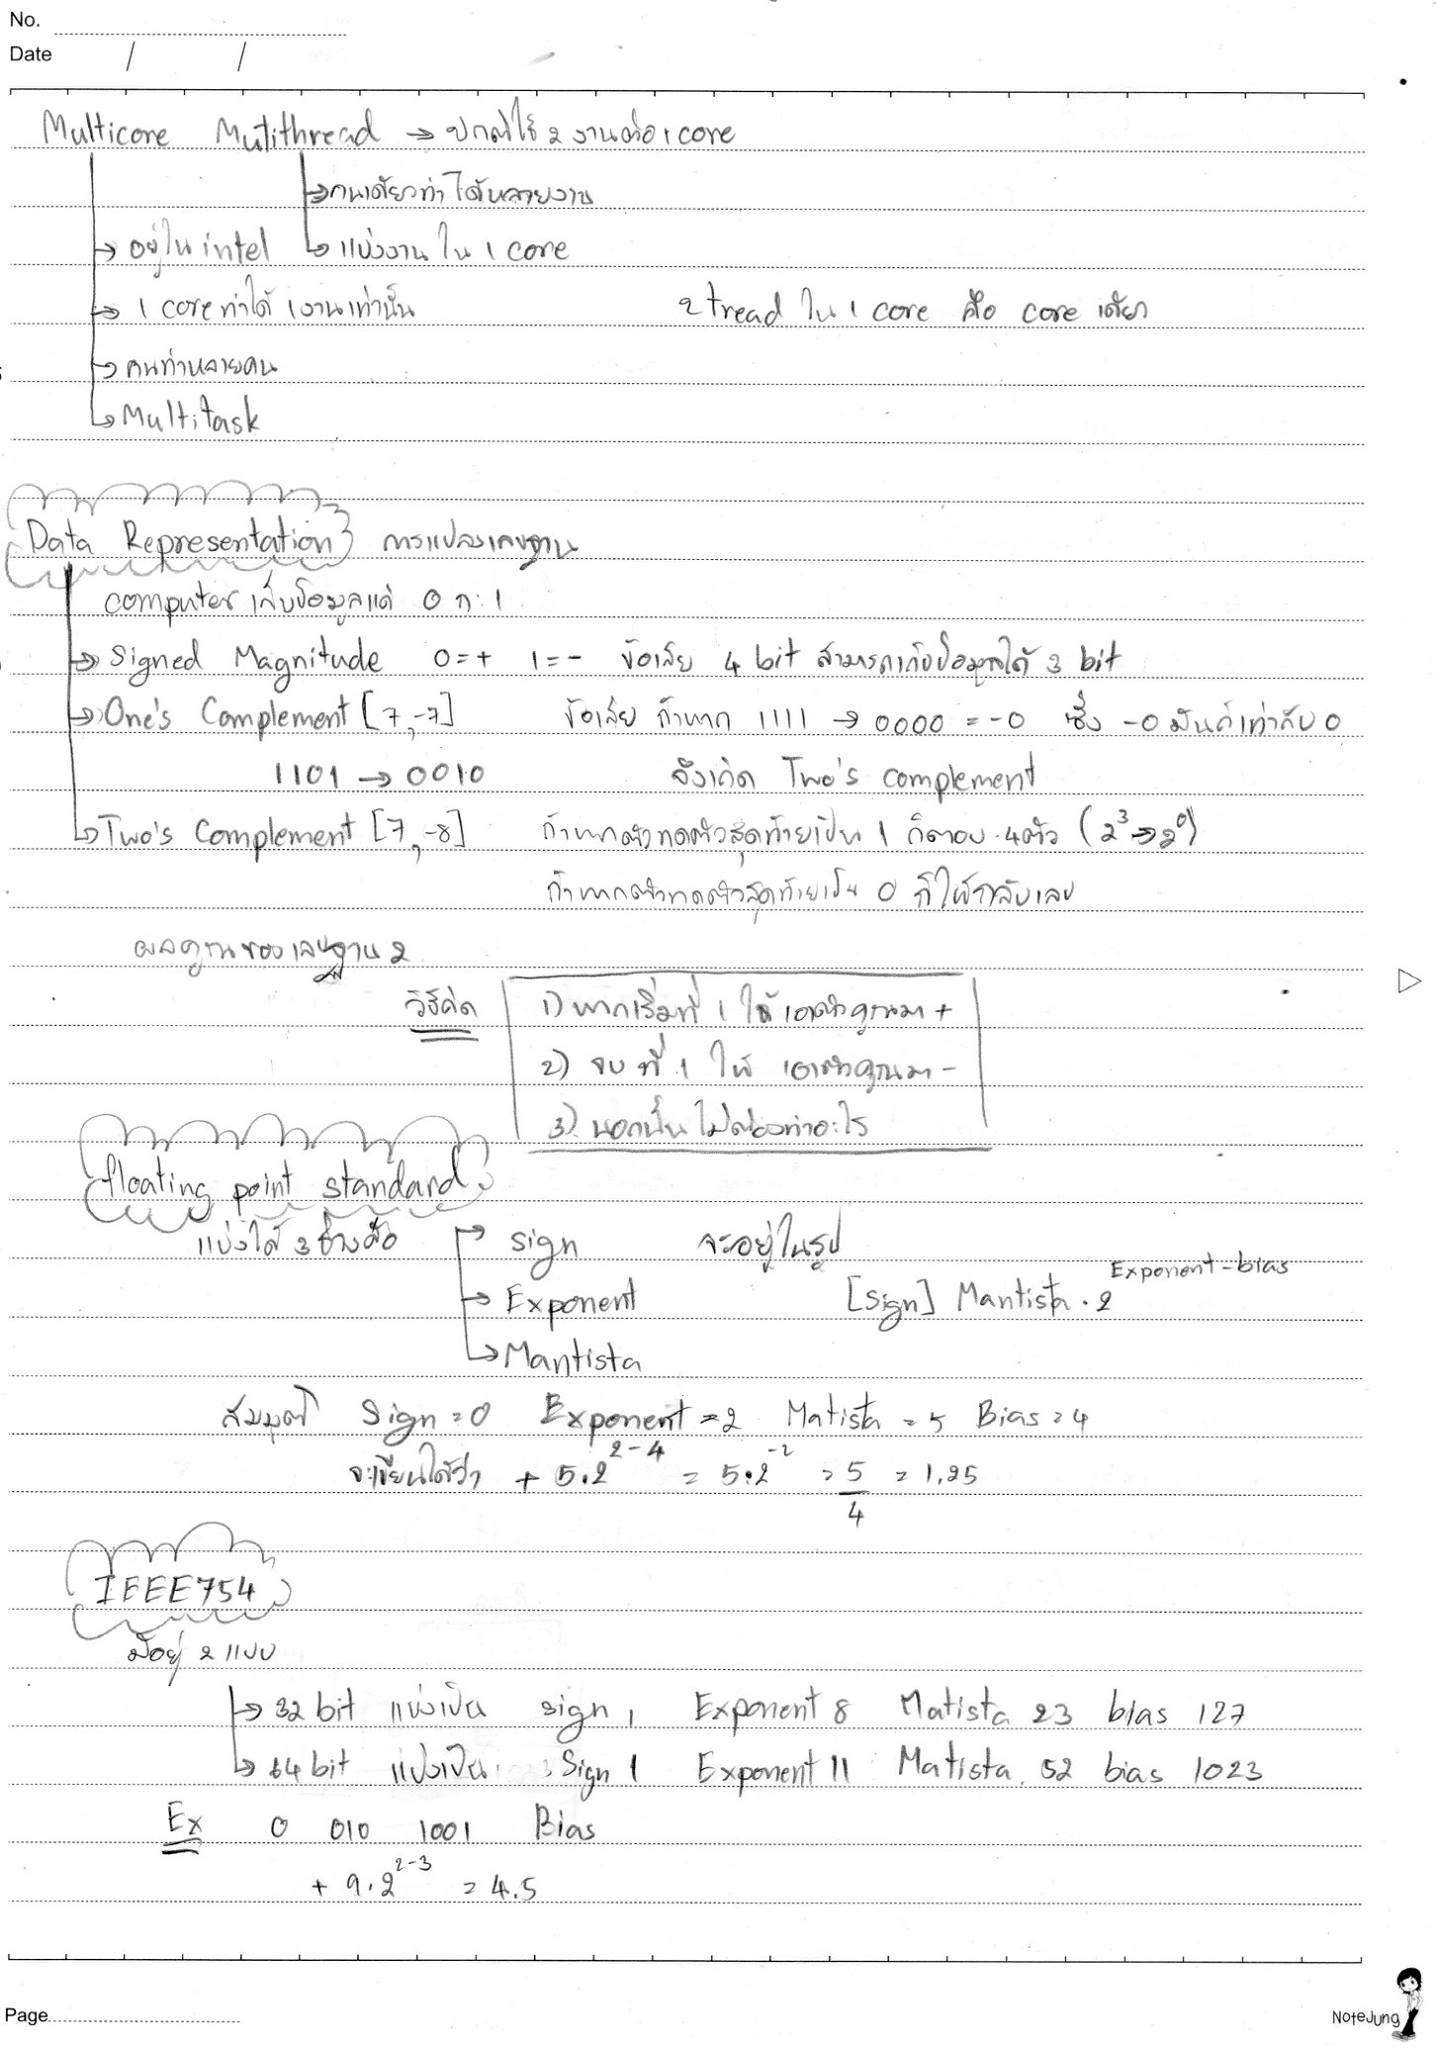 No.
Date / /
Multicore Mutithread → ปกติใช้ 2 งานต่อ 1 core
→ คนเดียวทำได้หลายงาน
→ อยู่ใน intel → แบ่งงานใน 1 core
→ 1 core ทำได้ 1 งานเท่านั้น 2 tread ใน 1 core คือ core เดียว
→ คนทำหลายคน
→ Multitask
Data Representation การแปลงเลขฐาน
computer เก็บข้อมูลแค่ 0 กะ 1
→ Signed Magnitude 0=+ 1=- ข้อเสีย 4 bit สามารถเก็บข้อมูลได้ 3 bit
→ One's Complement [7,-7] ข้อเสีย ถ้าหาก 1111 → 0000 = -0 ซึ่ง -0 มันก็เท่ากับ 0
1101 → 0010 จึงเกิด Two's complement
→ Two's Complement [7,-8] ถ้าหากตัวทดตัวสุดท้ายเป็น 1 ก็ตอบ 4 ตัว (2³→2⁰)
ถ้าหากตัวทดตัวสุดท้ายเป็น 0 ก็ให้กลับเลข
ผลคูณของเลขฐาน 2
วิธีคิด 1) หากเริ่มที่ 1 ให้เอาตัวคูณมา +
2) จบที่ 1 ให้ เอาตัวคูณมา -
3) นอกนั้นไม่ต้องทำอะไร
floating point standard
แบ่งได้ 3 ช่วงคือ → Sign จะอยู่ในรูป
→ Exponent [Sign] Mantista · 2^Exponent-bias
→ Mantista
สมมุติ Sign = 0 Exponent = 2 Matista = 5 Bias = 4
จะเขียนได้ว่า + 5·2^2-4 = 5·2^-2 = 5/4 = 1.25
IEEE754
มีอยู่ 2 แบบ
→ 32 bit แบ่งเป็น sign 1 Exponent 8 Matista 23 bias 127
→ 64 bit แบ่งเป็น Sign 1 Exponent 11 Matista 52 bias 1023
Ex 0 010 1001 Bias
+ 9·2^2-3 = 4.5
Page
NoteJung